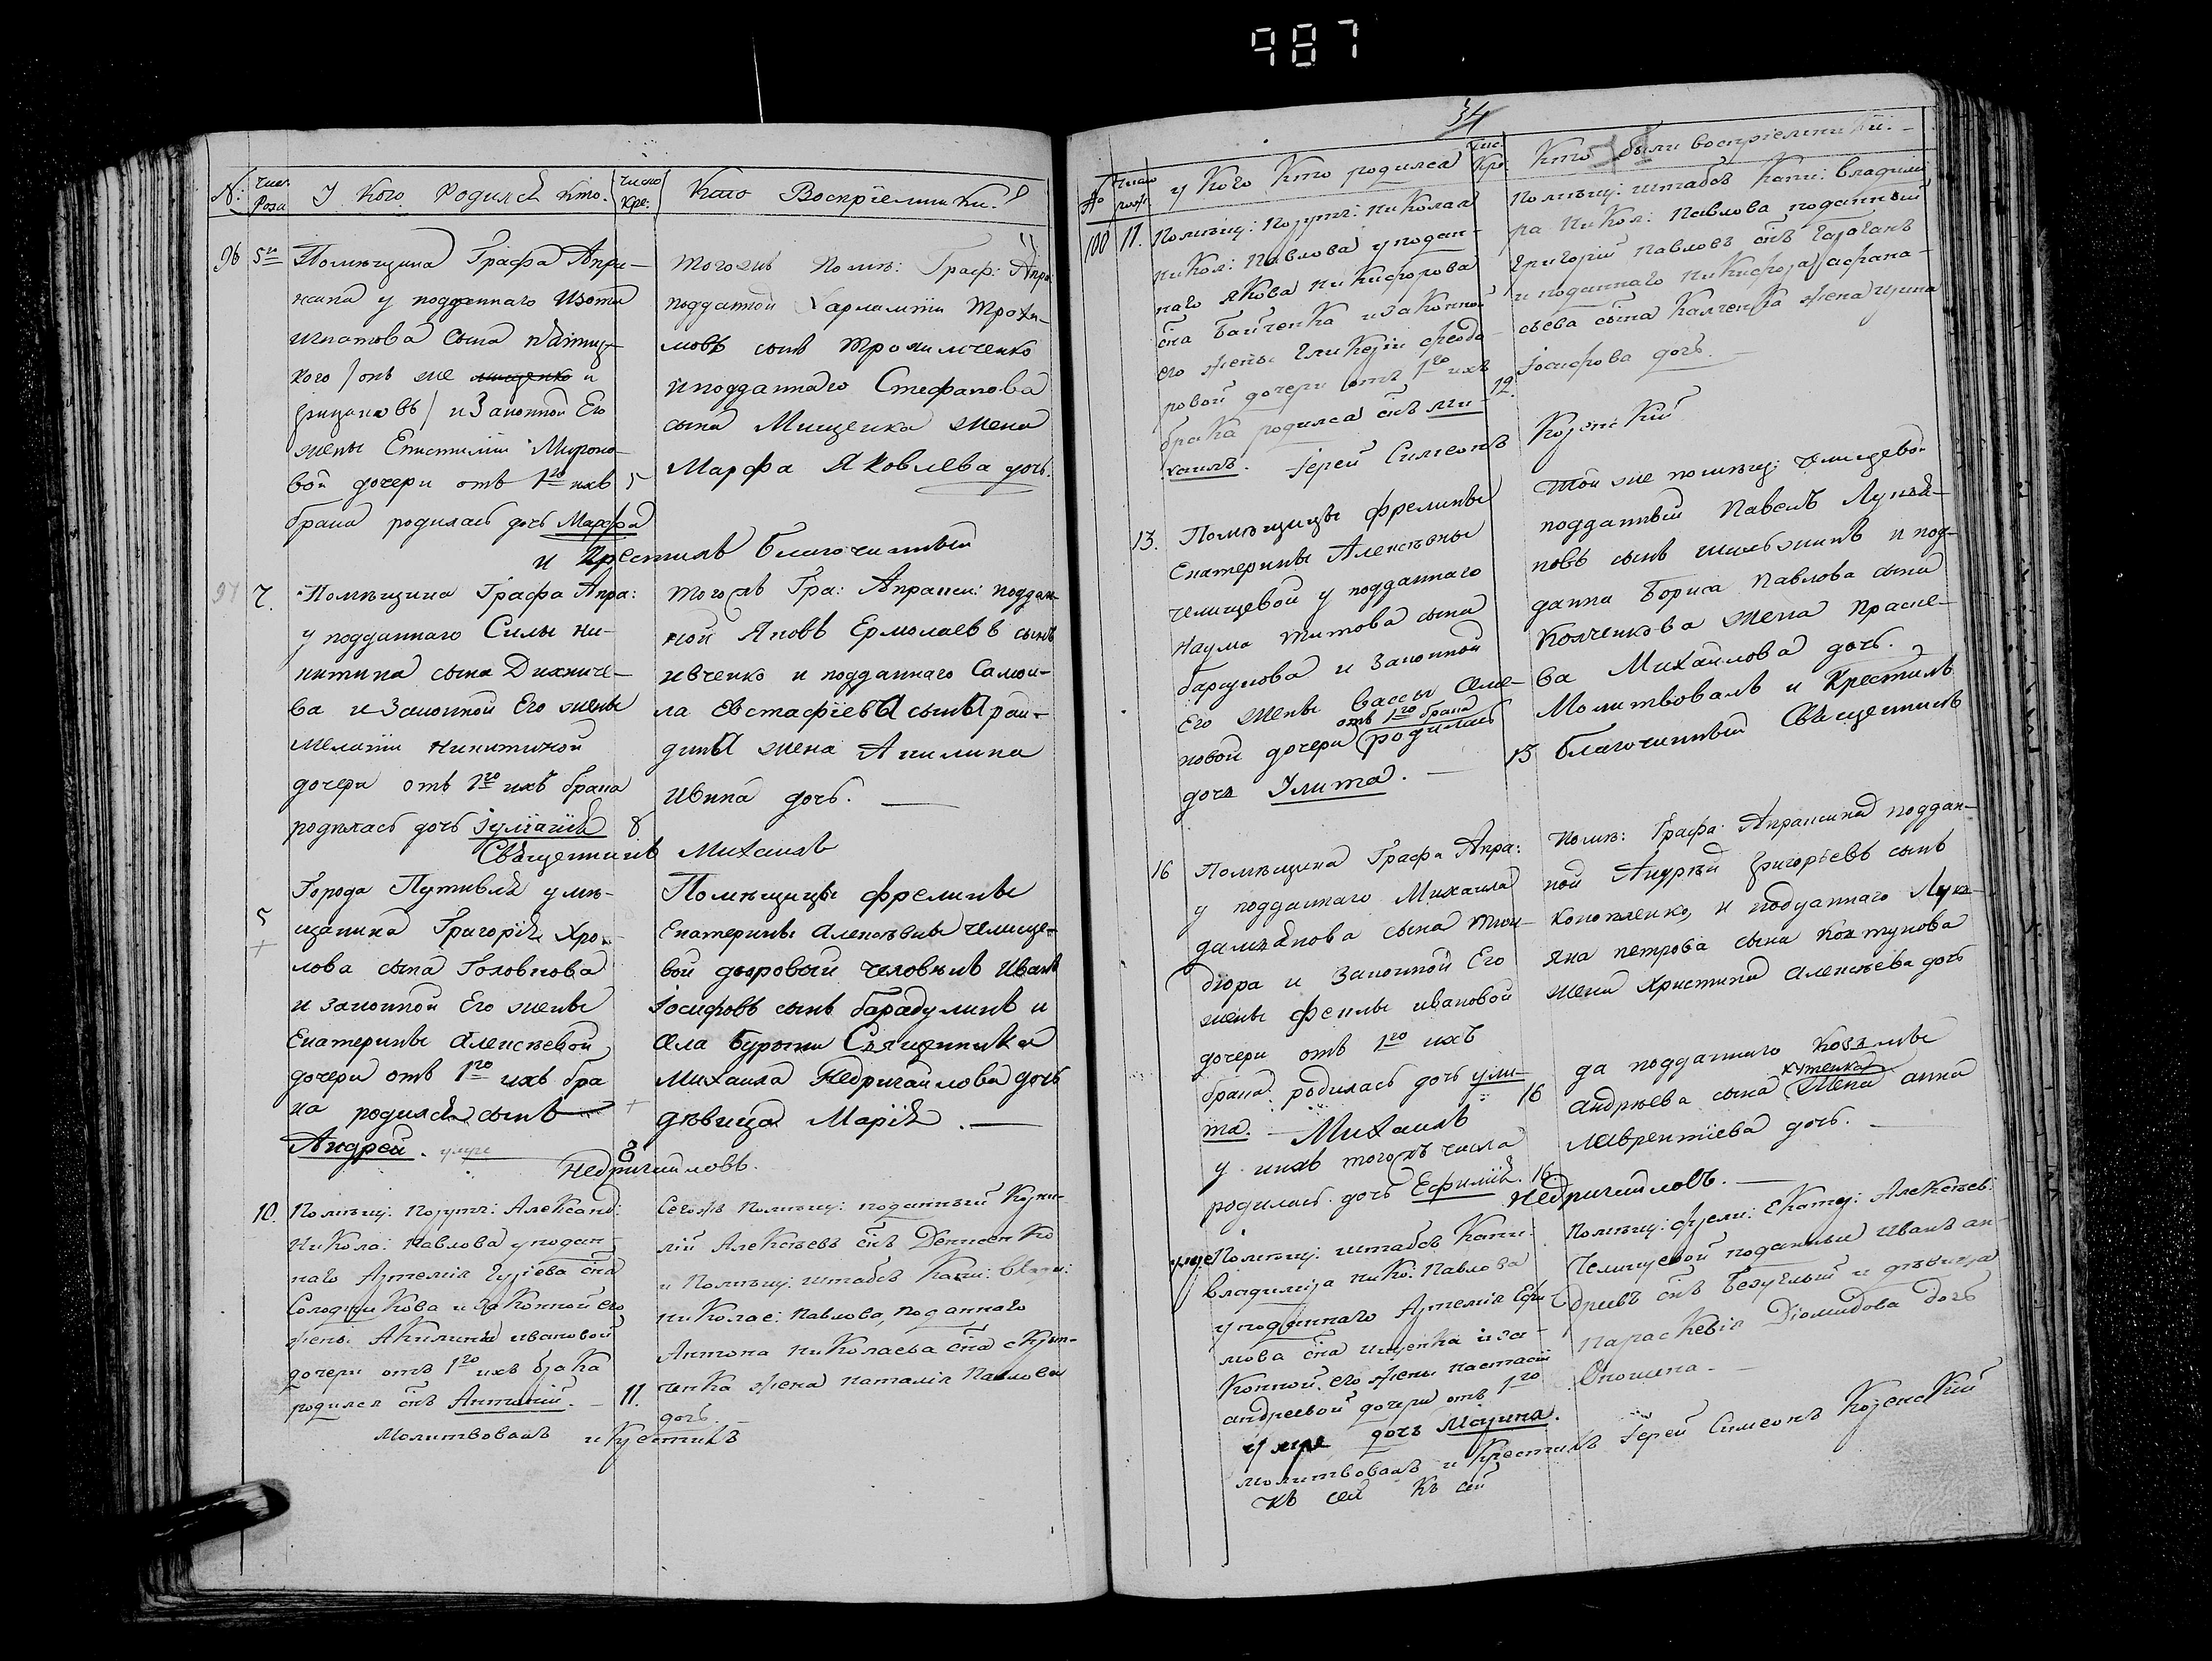 987
N: Числ. Рожд У Кого Родился кто. Число Кре: Кто Восприемники.
96 5го Помѣщика Графа Апра-
ксина у подданнаго Изота
Игнатова сына
кого / онъ же мищенко и
Грицановъ / и Законной Его
жены Епистиміи Мироно-
вой дочери отъ 1го ихъ 5
брака родилась дочь Марфа
тогожъ Помѣ: Граф: Апра
подданной Харлампій Трохи-
мовъ сынъ Трохимченко
и подданнаго Стефанова
сына Мищенка жена
Марфа Яковлева дочь.
и Крестилъ благочинный
97 7. Помѣщика Графа Апра:
у подданнаго Силы Ни-
китина сына Дихниче-
ва и Законной Его жены
Мелатіи Никитиной
дочери отъ 1го ихъ брака
родилась дочь Іуліагія 8
тогожъ Гра: Апракси: поддан-
ной Яковъ Ермолаевъ сынъ
Ивченко и подданнаго Самои-
ла Евстафіева сына
жена Акилина
Ивина дочь.
Священникъ Михаилъ
5 Города Путивля у мѣ-
щанина Григорія Хро-
лова сына Головкова
и Законной Его жены
Екатерины Алексѣевой
дочери отъ 1го ихъ бра
ка родился сынъ
Андрей. умре
Помѣщицы фрелины
Екатерины Алексѣевны Челище-
вой дворовый человѣкъ Иванъ
Іосифовъ сынъ Барабулинъ и
села Бурыни Священника
Михаила Недригайлова дочь
дѣвица Марія.
8
Недригайловъ.
10. Помѣщ: Порутч: Александ:
Никола: Павлова у подан-
наго Артемія Гуріева сна
Солодушкова и законной его
жены Акилины Ивановой
дочери отъ 1го ихъ брака
родился снъ Антоній. 11.
Сегожъ Помѣщ: поданный Корни-
лій Алексѣевъ снъ Денисенко
и Помѣщ: штабсъ Капи: Влади:
Николае: Павлова, поданнаго
Антона Николаева сна
ченка жена Наталія Павлова
дочь.
Молитвовалъ и Крестилъ
34
No Число рожд у Кого Кто родился Чис. Кре. Кто были восприемники.
100 11. Помѣщ: Порутч: Николая
Никол: Павлова у подан-
наго Якова Никифорова
сна Байченка и законной
его жены Гликеріи Феодо-
ровой дочери отъ 1го ихъ 12.
брака родился снъ Ми-
хаилъ.
Помѣщ: штабсъ Капи: Владими
ра Никол: Павлова поданный
Григорій Павловъ снъ
и поданнаго Никифора Афана-
сьева сына Калченка жена Ирина
Іосифова дочь.
Іерей Симеонъ Козенскій
13. Помѣщицы фрелины
Екатерины Алексѣевны
Челищевой у подданнаго
Наума Титова сына
Барсукова и Законной
Его жены Вассы Семе-
отъ 1го брака
новой дочери родилась 15
дочь Улита.
Той же помѣщ: Челищевой
подданный Павелъ Лукья-
новъ сынъ и под-
данна Бориса Павлова сына
Колченкова жена Праске-
ва Михайлова дочь.
Молитвовалъ и Крестилъ
благочинный Священникъ
16 Помѣщика Графа Апра:
у подданнаго Михаила
Дамианова сына
бюра и Законной Его
жены Феклы Ивановой
дочери отъ 1го ихъ
брака родилась дочь Ули- 16
та. Михаилъ
у нихъ тогожъ числа
родилась дочь Ефимія. 16
Помѣ: Графа: Апраксина поддан-
ной Андрей Григорьевъ сынъ
Конопленко, и подданнаго Лукь-
яна Петрова сына Колтунова
жена Христина Алексѣева дочь
да подданнаго Козьмы
Андреева сына жена Анна
Лаврентіева дочь.
Недригайловъ.
умре Помѣщ: штабсъ Капи:
Владиміра Нико: Павлова
у поданнаго Артемія Ефи
мова сна Ищенка и за-
конной его жены Настасіи
Андреевой дочери отъ 1го
умре дочь Марина.
Помѣщ: фрели: Екатер: Алексѣев:
Челищевой поданный Иванъ Ан-
дреевъ снъ Безуглый и дѣвица
Параскевія Діомидова дочь
Опошина.
молитвовалъ и Крестилъ Іерей Симеонъ Козенскій
Къ сей Къ сей